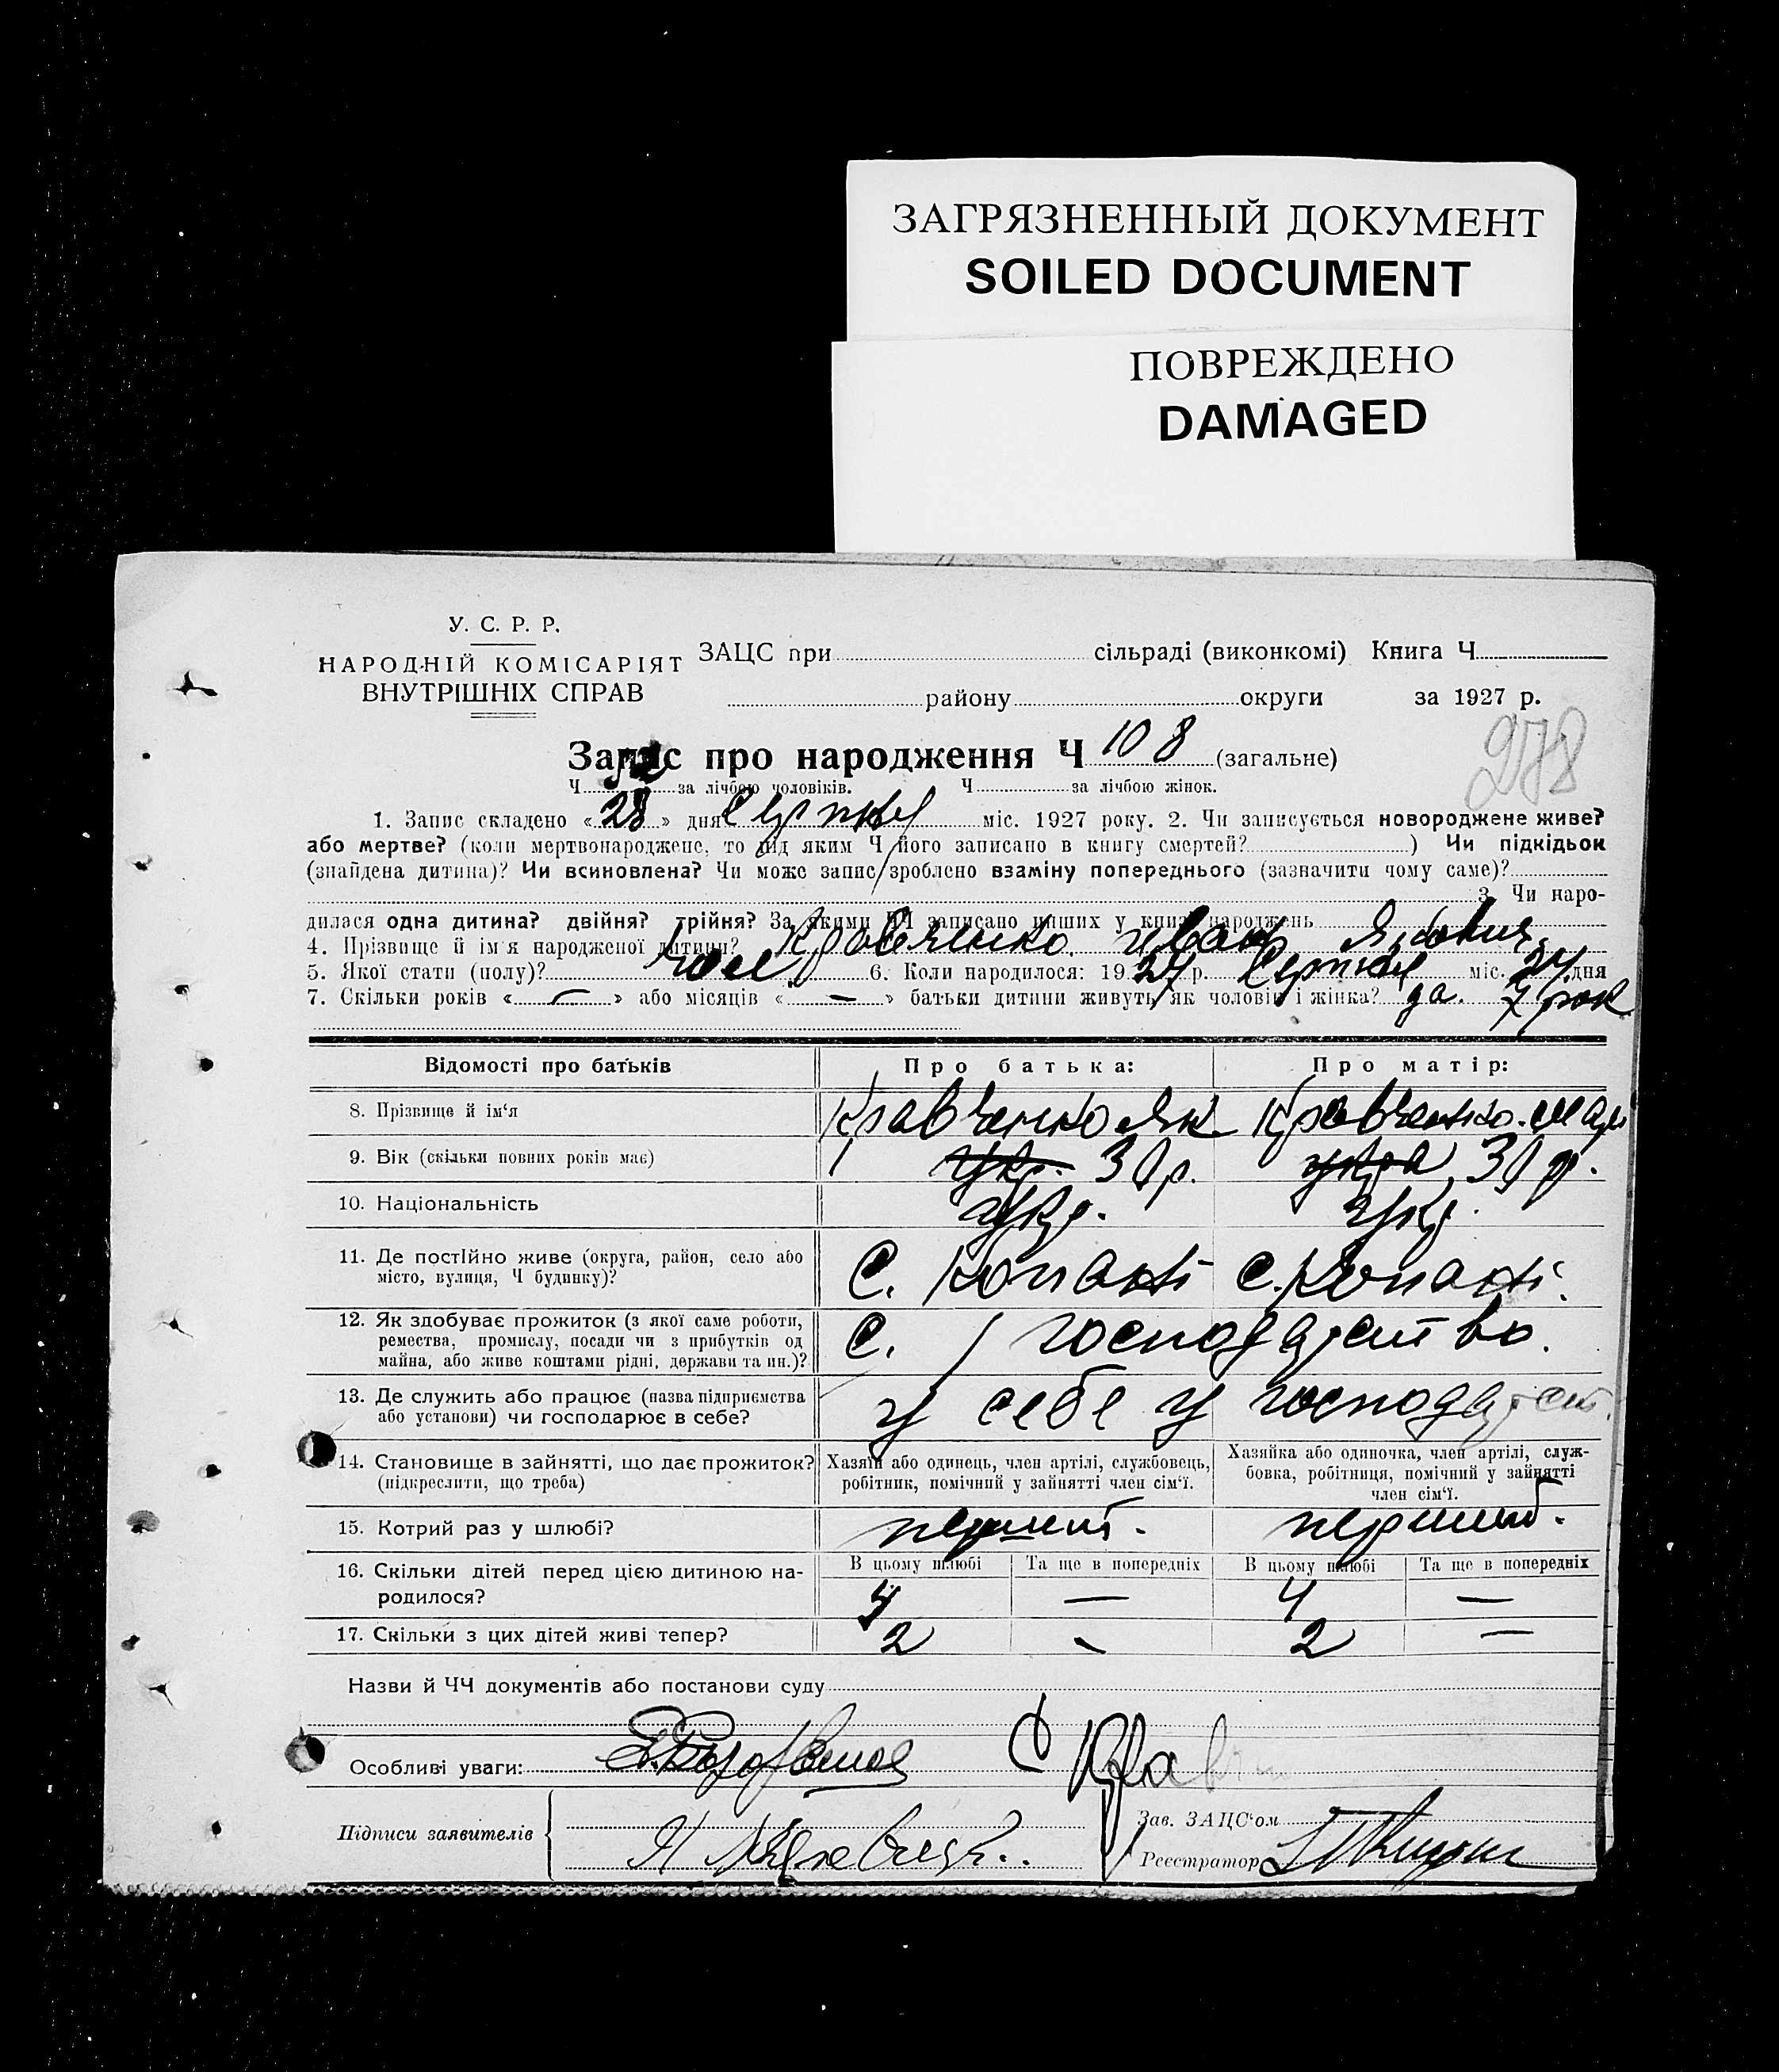 ЗАГРЯЗНЕННЫЙ ДОКУМЕНТ
SOILED DOCUMENT
ПОВРЕЖДЕНО
DAMAGED
У. С. Р. Р.
НАРОДНІЙ КОМІСАРІЯТ
ВНУТРІШНІХ СПРАВ
ЗАЦС при сільраді (виконкомі) Книга Ч
району округи за 1927 р.
278
Запис про народження Ч 108 (загальне)
Ч за лічбою чоловіків. Ч за лічбою жінок.
1. Запис складено «28» дня Серпня міс. 1927 року. 2. Чи записується новороджене живе?
або мертве? (коли мертвонароджене, то під яким Ч його записано в книгу смертей? ) Чи підкідьок
(знайдена дитина)? Чи всиновлена? Чи може запис зроблено взаміну попереднього (зазначити чому саме)?
3. Чи наро-
дилася одна дитина? двійня? трійня? За якими ЧЧ записано инших у книзі народжень
4. Прізвище й ім'я народженої дитини? Кравченко Иван Якович
5. Якої стати (полу)? Чол. 6. Коли народилося: 1927 р. Серпня міс. 24 дня
7. Скільки років « — » або місяців « — » батьки дитини живуть як чоловік і жінка? да. 7 рок
Відомості про батьків Про батька: Про матір:
8. Прізвище й ім'я Кравченко Як Кравченко. Мари
9. Вік (скільки повних років має) укр. 30 р. 30 р.
10. Національність укр. укр.
11. Де постійно живе (округа, район, село або
місто, вулиця, Ч будинку)? С. Копані С. Копані.
12. Як здобуває прожиток (з якої саме роботи,
ремества, промислу, посади чи з прибутків од
майна, або живе коштами рідні, держави та ин.)? С. / господарство.
13. Де служить або працює (назва підприємства
або установи) чи господарює в себе? у себе у господарст.
14. Становище в зайнятті, що дає прожиток?
(підкреслити, що треба)
Хазяїн або одинець, член артілі, службовець,
робітник, помічний у зайнятті член сім'ї.
Хазяйка або одиночка, член артілі, служ-
бовка, робітниця, помічний у зайнятті
член сім'ї.
15. Котрий раз у шлюбі? перший. перший.
16. Скільки дітей перед цією дитиною на-
родилося?
В цьому шлюбі Та ще в попередніх В цьому шлюбі Та ще в попередніх
4 — 4 —
17. Скільки з цих дітей живі тепер? 2 - 2 —
Назви й ЧЧ документів або постанови суду
Особливі уваги:
Підписи заявителів
Зав. ЗАЦС'ом
Реєстратор